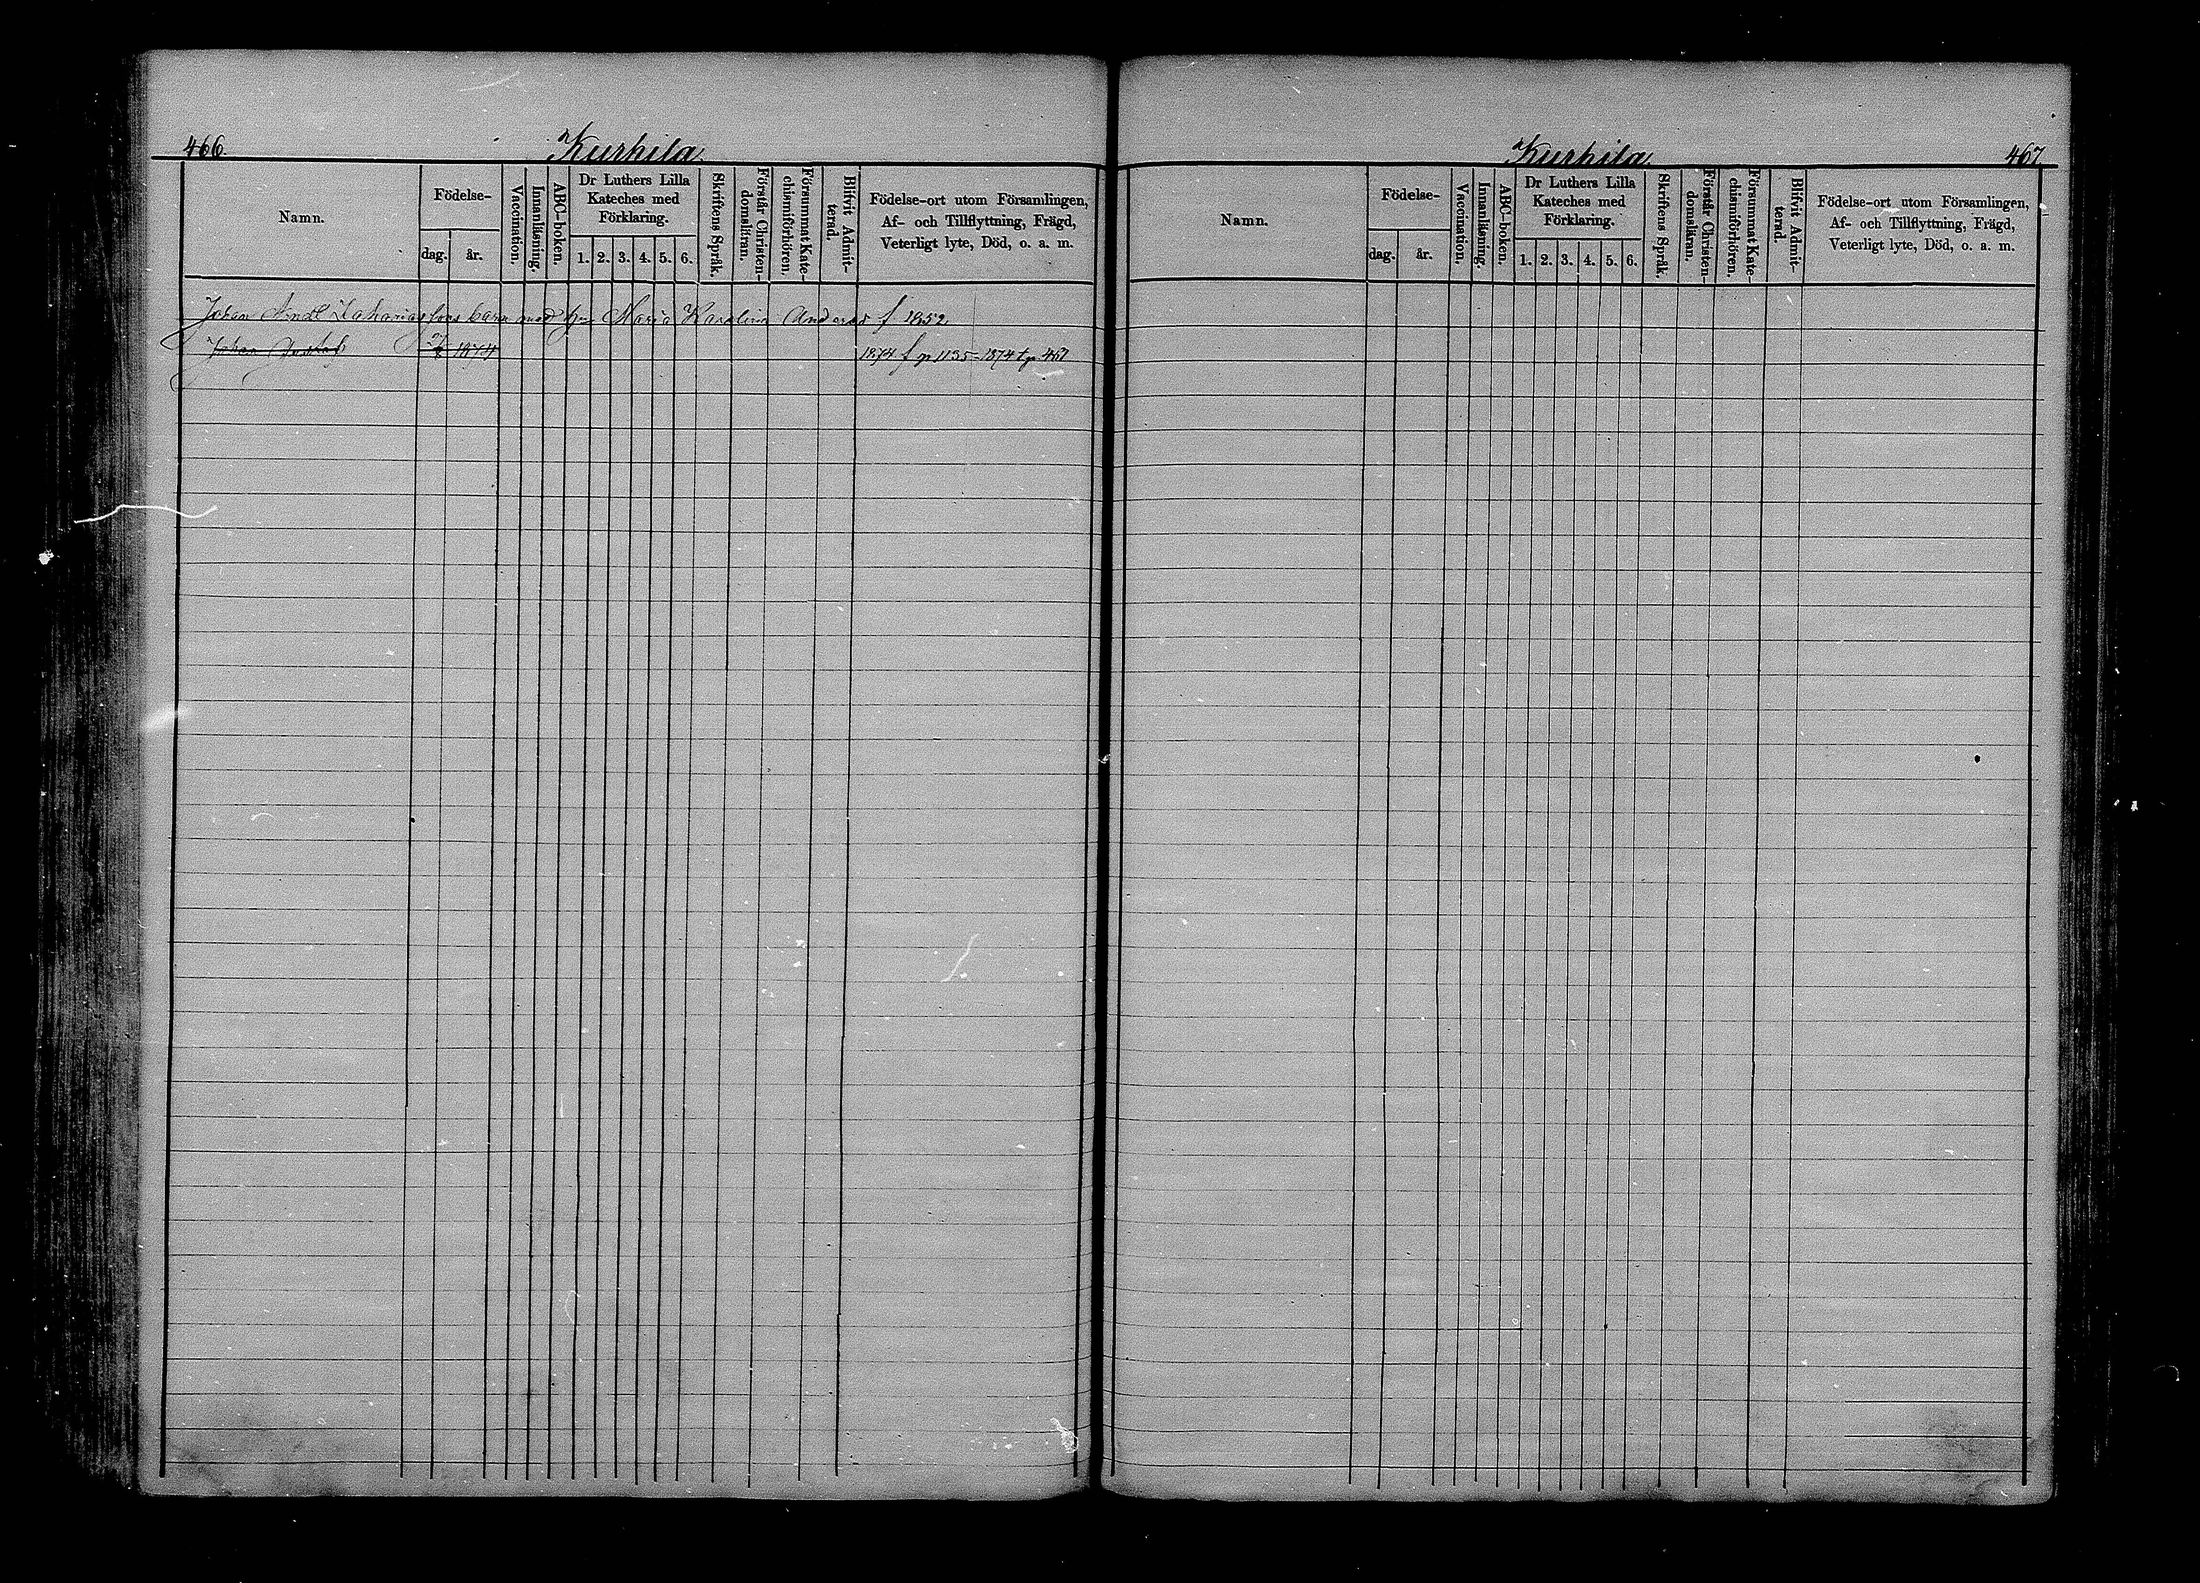 466.
Kurhila.
Namn.
Födelse-
dag.
år.
Vaccination.
Innanläsning.
ABC-boken.
Dr Luthers Lilla
Kateches med
Förklaring.
1. 2. 3. 4. 5. 6.
Skriftens Språk.
Förstår Christen-
domsläran.
Försummat Kate-
chismiförhören.
Blifvit Admit-
terad.
Födelse-ort utom Församlingen,
Af- och Tillflyttning, Frägd,
Veterligt lyte, Död, o. a. m.
Johan Zacharias barn med Maria Karolina f 1852
Johan Gustaf 1874 1874 f p 1135 = 1874 t p 467
Kurhila
467.
Namn.
Födelse-
dag.
år.
Vaccination.
Innanläsning.
ABC-boken.
Dr Luthers Lilla
Kateches med
Förklaring.
1. 2. 3. 4. 5. 6.
Skriftens Språk.
Förstår Christen-
domsläran.
Försummat Kate-
chismiförhören.
Blifvit Admit-
terad.
Födelse-ort utom Församlingen,
Af- och Tillflyttning, Frägd,
Veterligt lyte, Död, o. a. m.